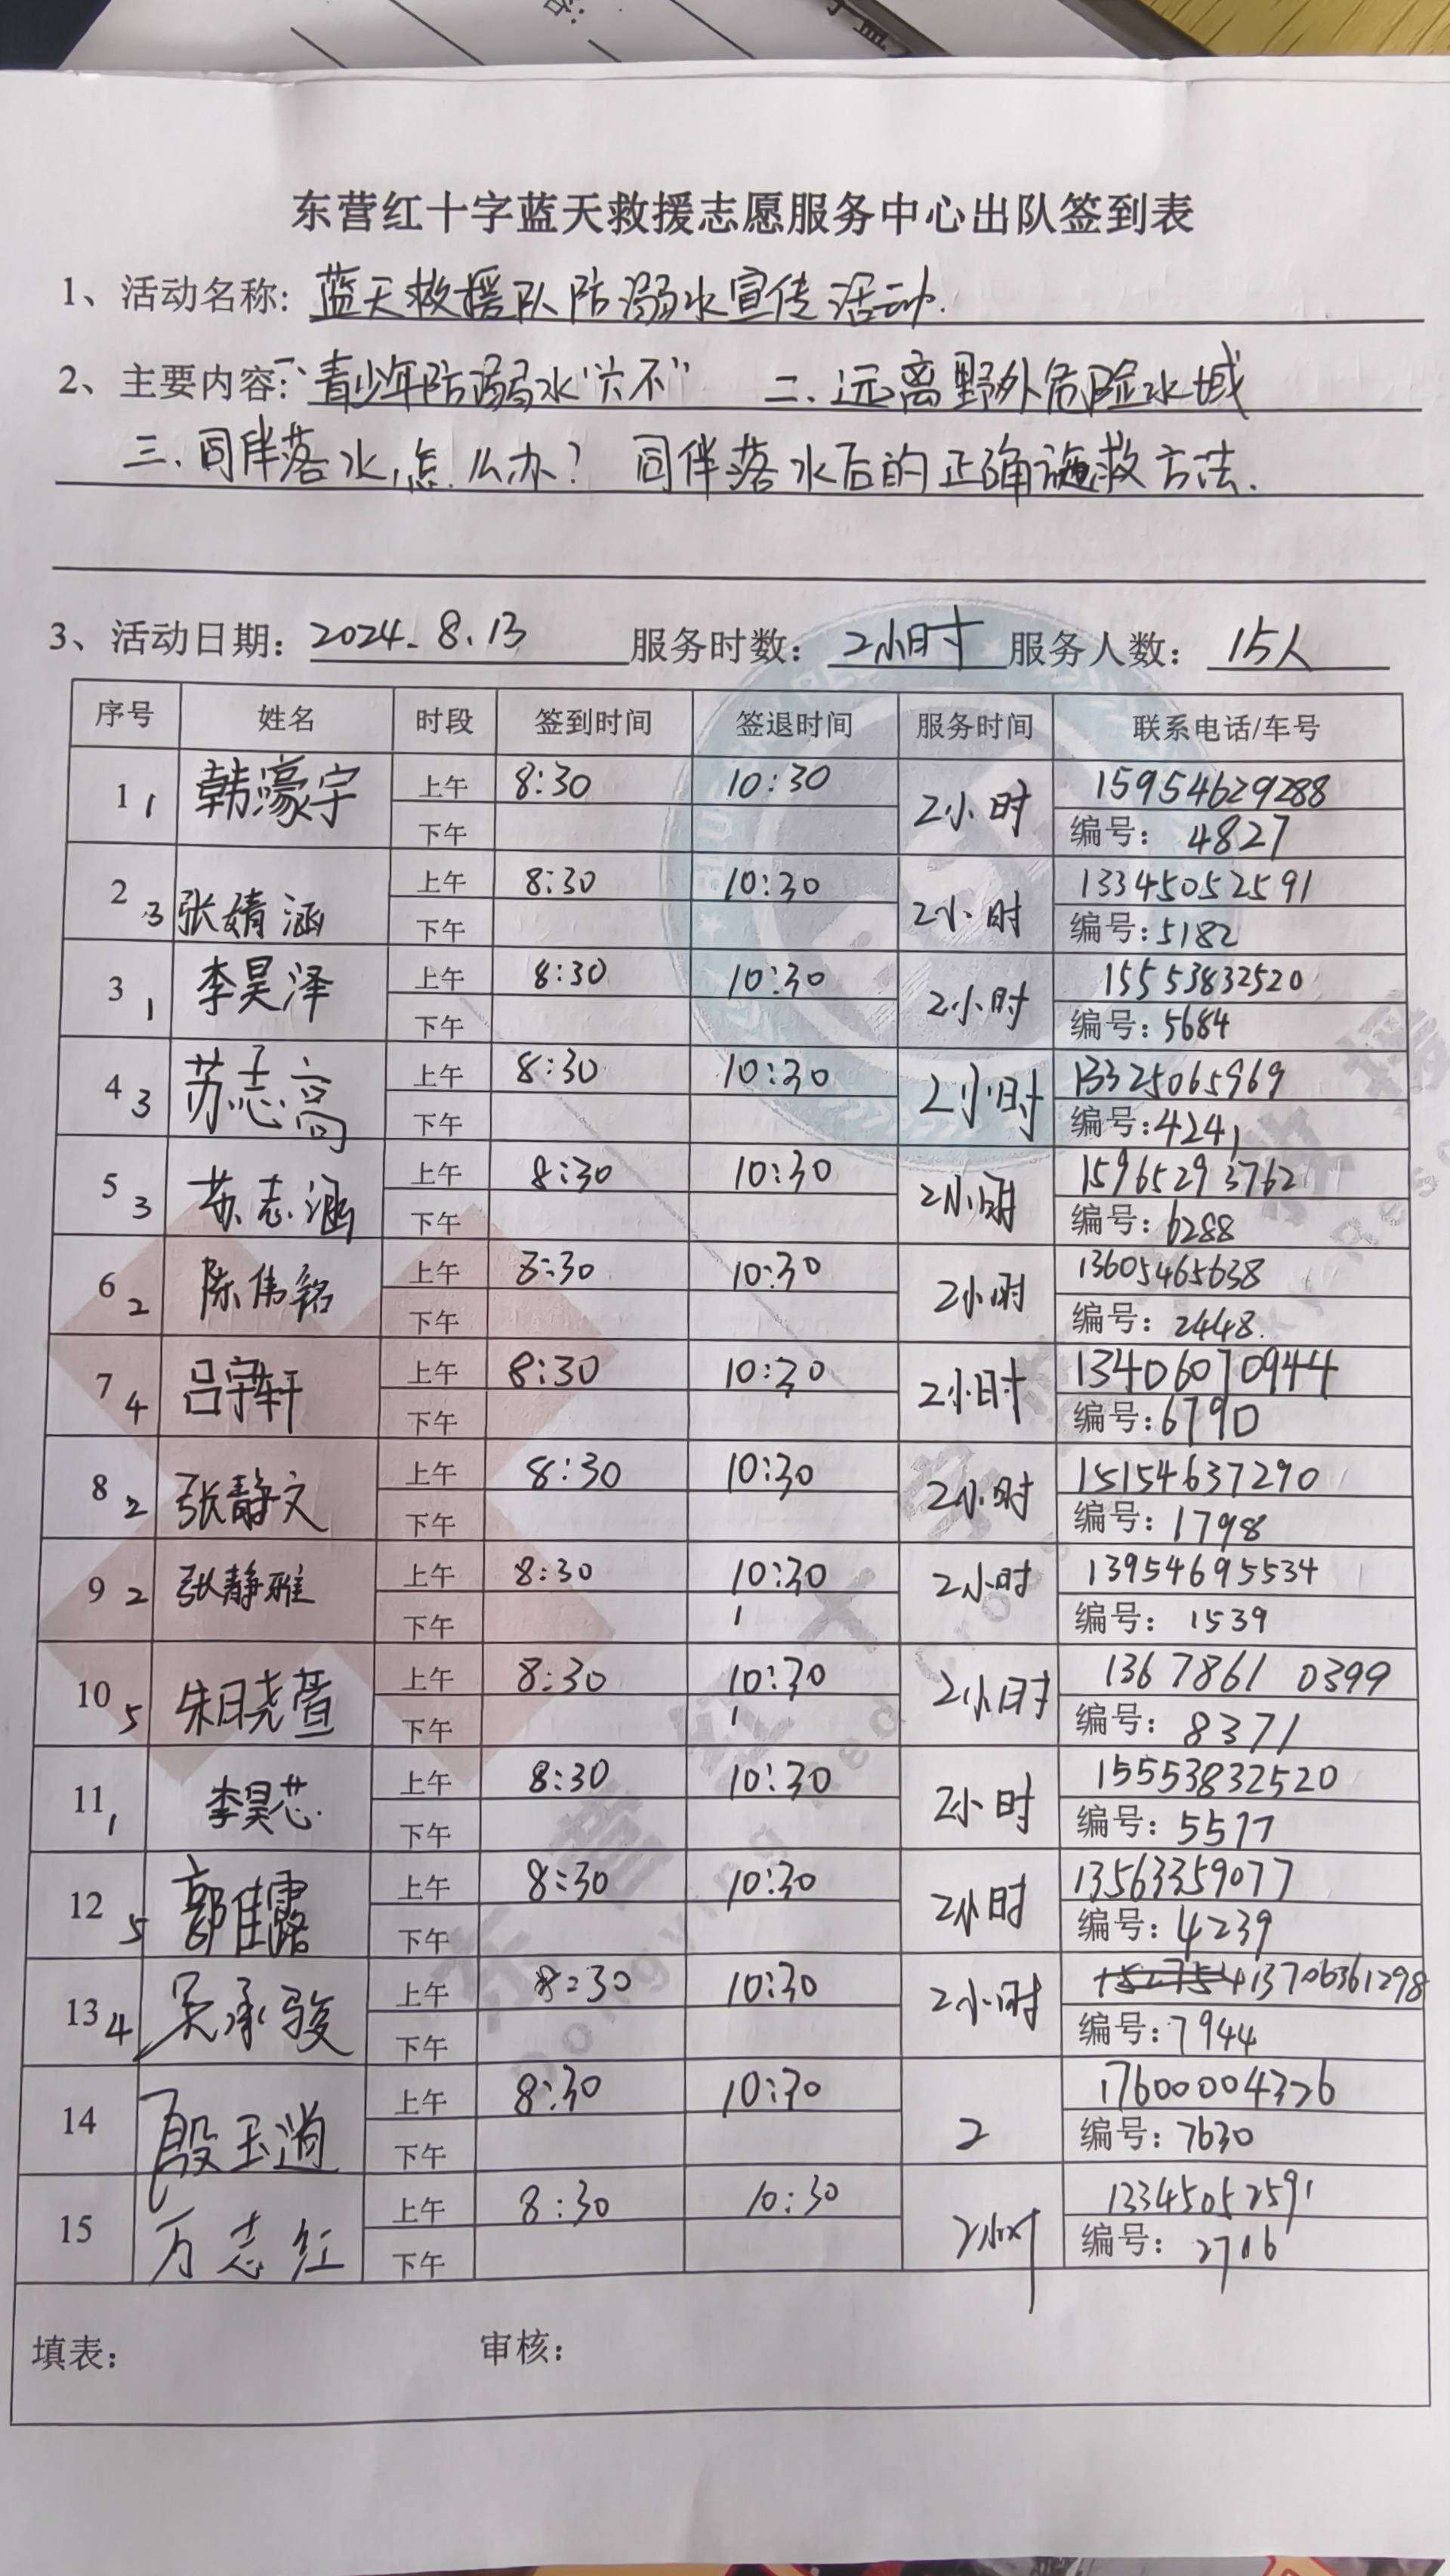 东营红十字蓝天救援志愿服务中心出队签到表
1、活动名称: 蓝天救援队防溺水宣传活动.
2、主要内容: 一、青少年防溺水"六不" 二.远离野外危险水域
三.同伴落水,怎么办? 同伴落水后的正确施救方法.
3、活动日期: 2024.8.13 服务时数: 2小时 服务人数: 15人
序号 姓名 时段 签到时间 签退时间 服务时间 联系电话/车号
1 1 韩濠宇 上午 8:30 10:30 2小时 15954629288
下午 编号: 4827
2 3 张婧涵 上午 8:30 10:30 2小时 13345052591
下午 编号: 5182
3 1 李昊泽 上午 8:30 10:30 2小时 15553832520
下午 编号: 5684
4 3 苏志高 上午 8:30 10:30 2小时 13325065969
下午 编号: 4241
5 3 苏志涵 上午 8:30 10:30 2小时 15965293762
下午 编号: 6288
6 2 陈伟铭 上午 8:30 10:30 2小时 13605465638
下午 编号: 2448.
7 4 吕宇轩 上午 8:30 10:30 2小时 13406070944
下午 编号: 6790
8 2 张静文 上午 8:30 10:30 2小时 15154637290
下午 编号: 1798
9 2 张静雅 上午 8:30 10:30 2小时 13954695534
下午 编号: 1539
10 5 朱晓萱 上午 8:30 10:30 2小时 136 7861 0399
下午 编号: 8371
11 1 李昊芯. 上午 8:30 10:30 2小时 15553832520
下午 编号: 5577
12 5 郭佳露 上午 8:30 10:30 2小时 13563359077
下午 编号: 4239
13 4 吴承骏 上午 8:30 10:30 2小时 13706361298
下午 编号: 7944
14 殷玉 上午 8:30 10:30 2 17600004376
下午 编号: 7630
15 万志红 上午 8:30 10:30 2小时 13345052591
下午 编号: 2716
填表: 审核: